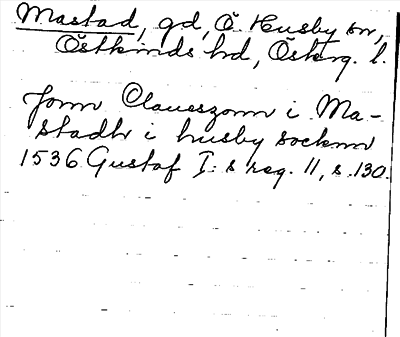 Mastad, gd, Ö. Husby sn,
Östkinds hd, Österg. l.
Jonn Claueszonn i Ma-
stadh i husby socknn
1536 Gustaf I:s reg. 11, s. 130.